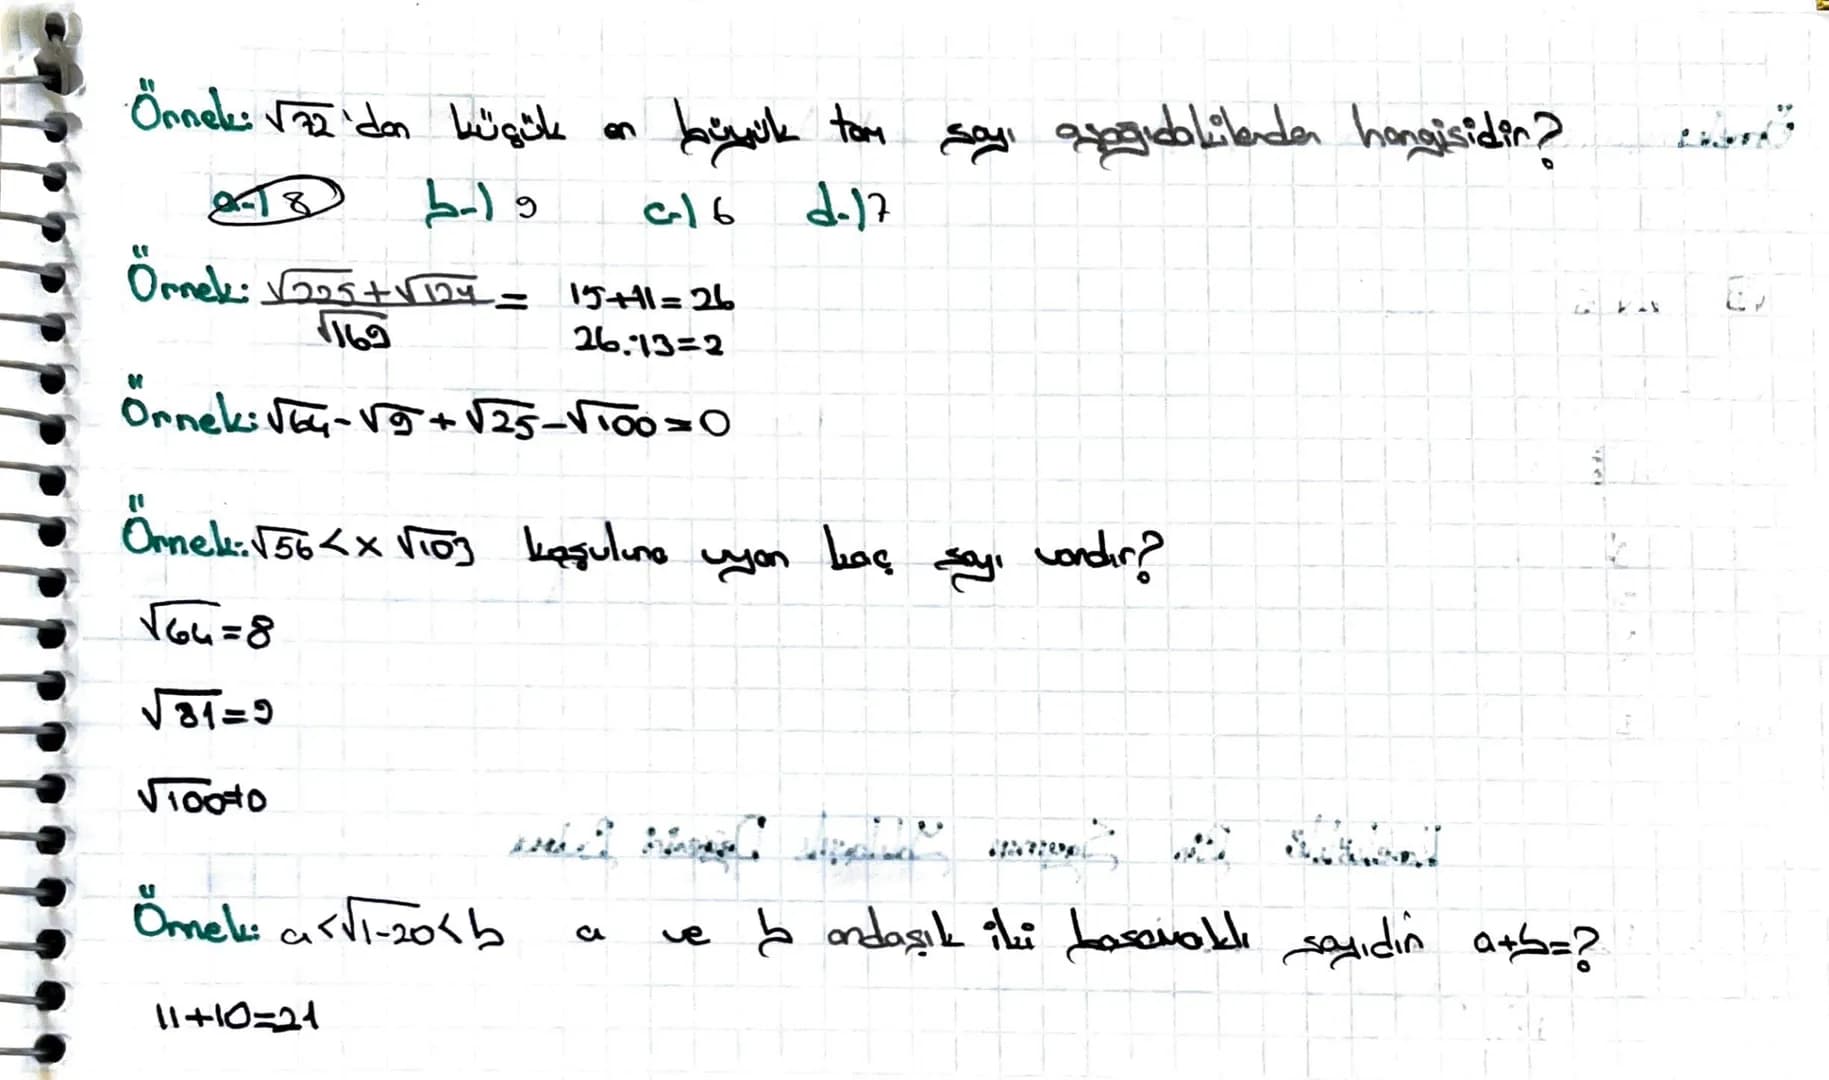 Örnek: √72'den küçük en büyük tam sayı aşağıdakilerden hangisidir?
a-) 8 b-) 9 c-) 6 d-) 7
Örnek: √225+√124 / √169 = 15+11=26
26:13=2
Örnek: √64-√9+√25-√100=0
Örnek: √56<x √103 koşuluna uyan kaç sayı vardır?
√64=8
√81=9
√100=10
Örnek: a<√1-20<b a ve b ardaşık iki basamaklı sayıdır a+b=?
11+10=21